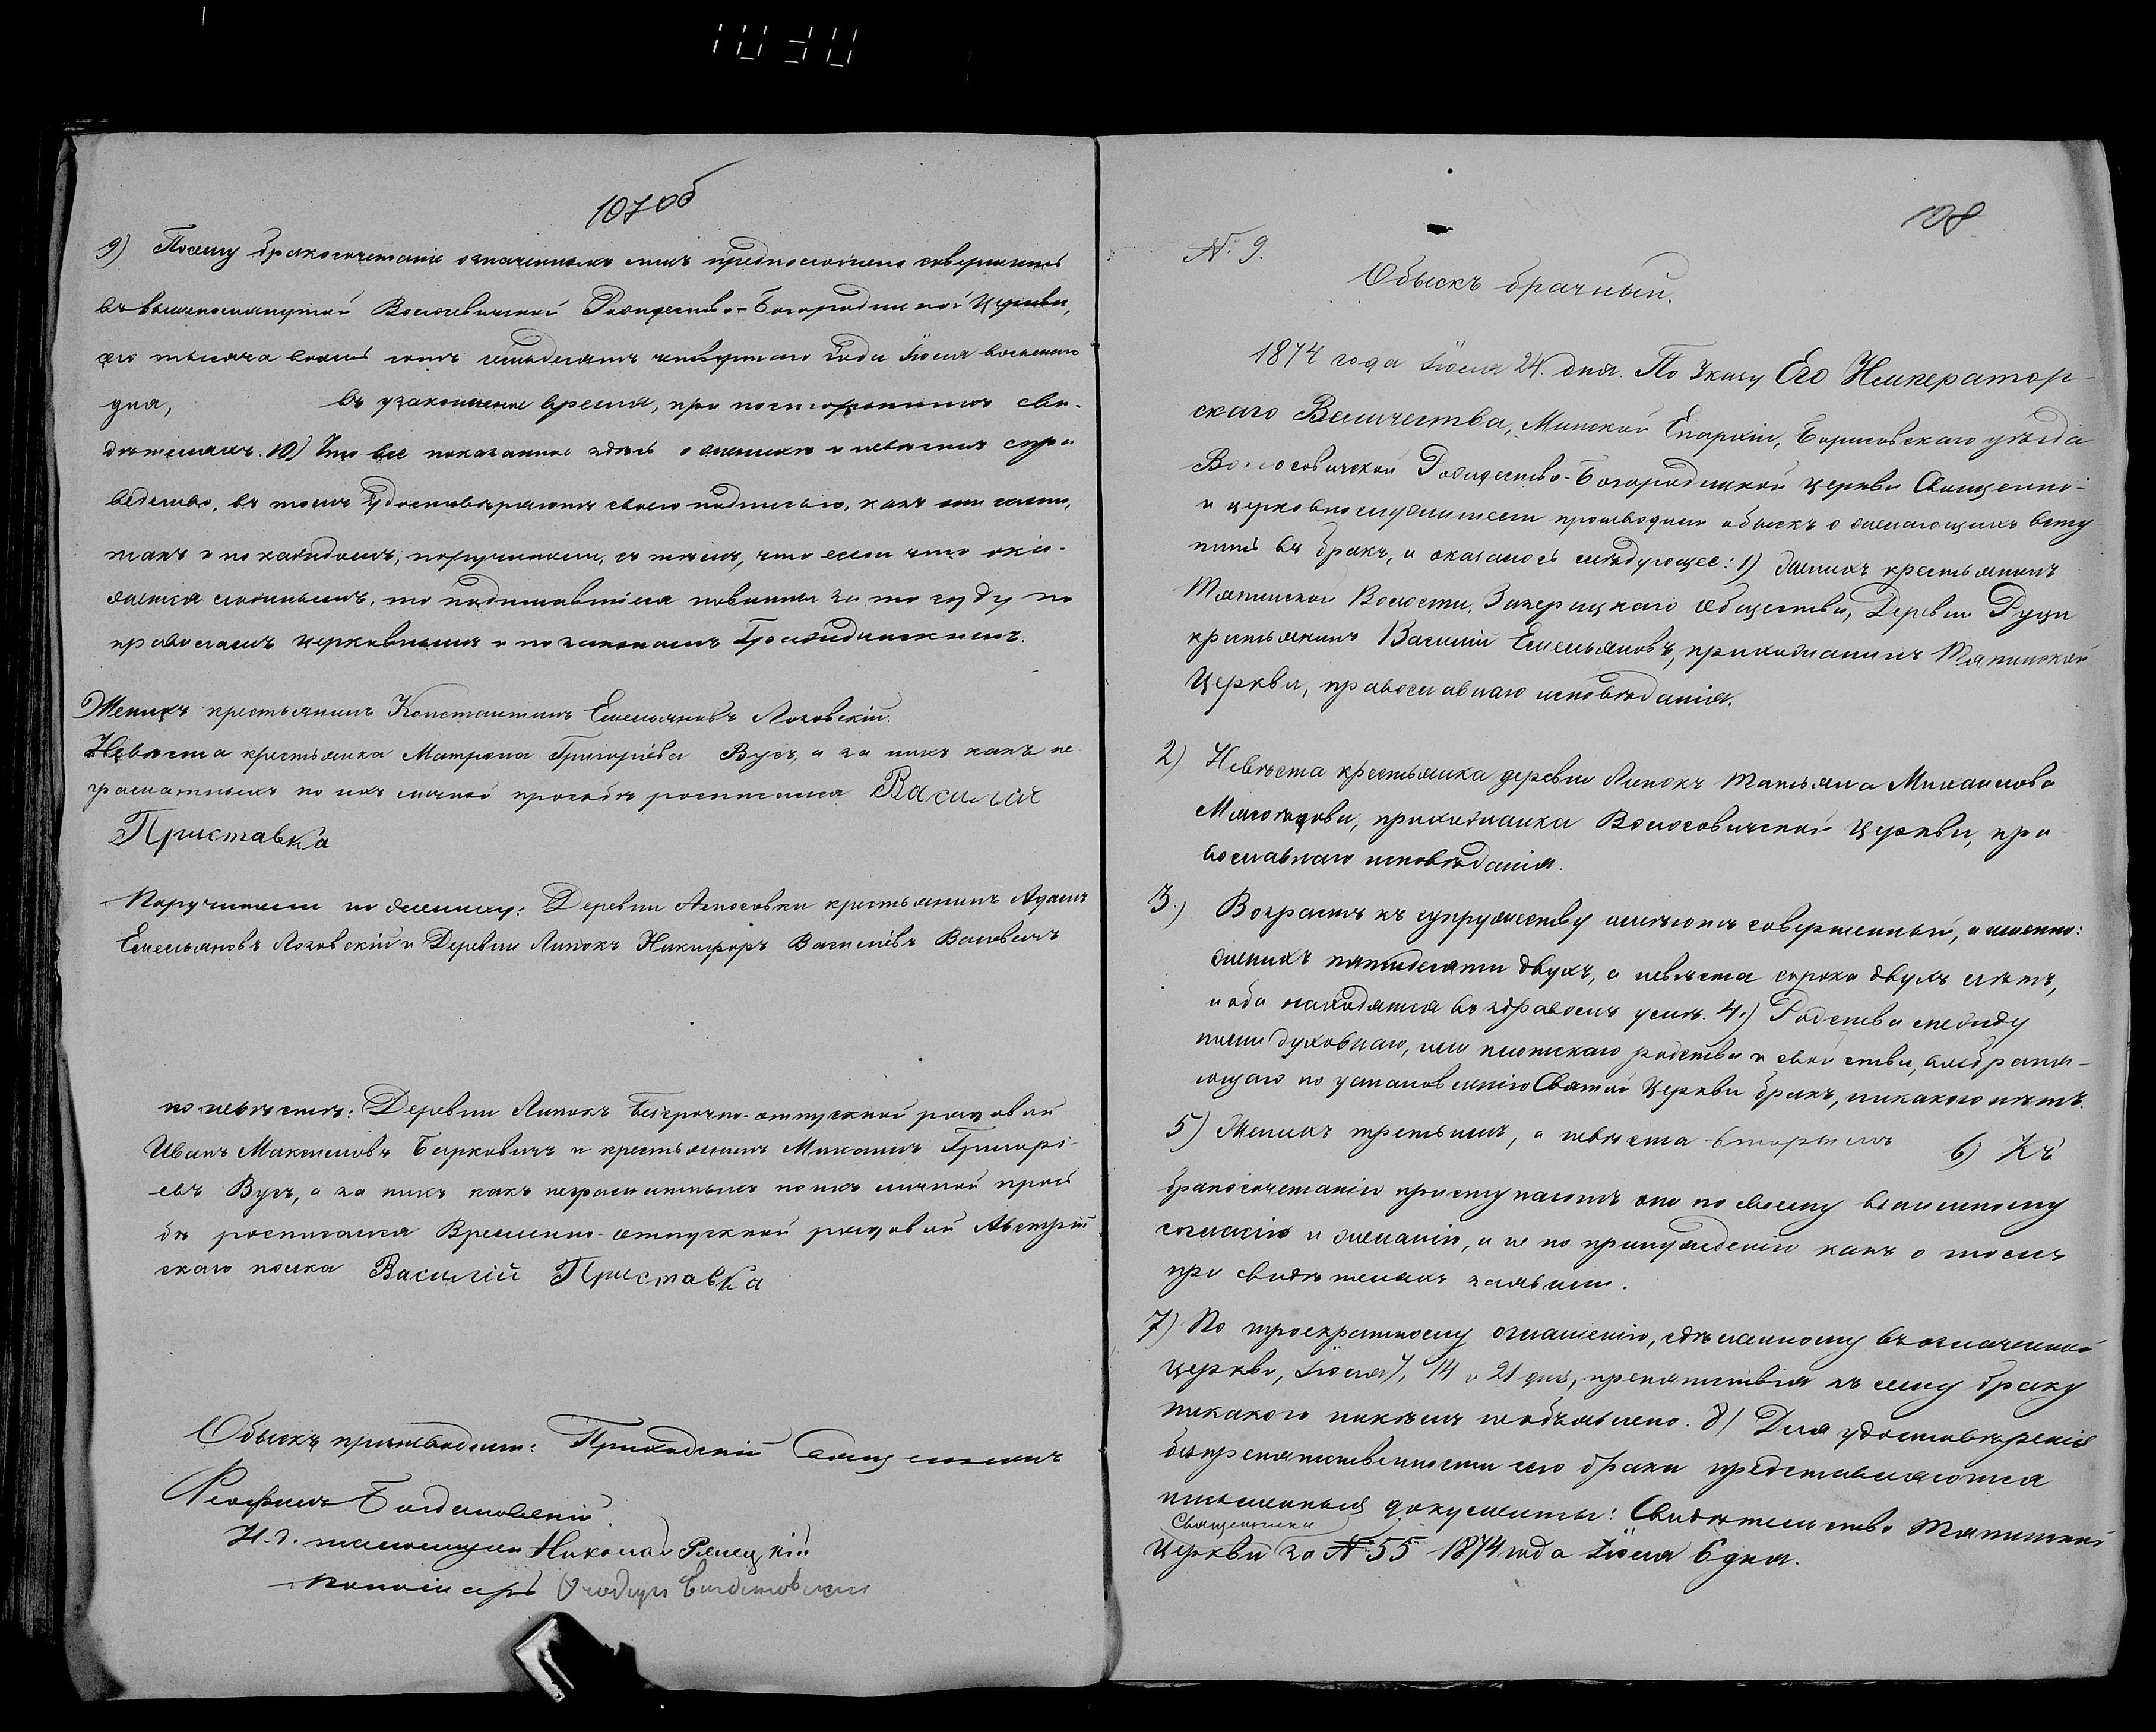 107об
9) Посему бракосочетаніе означенныхъ лицъ предположено совершить
въ вышепомянутой Волосевичской Рождество-Богородицкой Церкви,
сего тысяча восемь сотъ семьдесятъ четвертаго года Іюля восьмаго
дня, въ узаконенное время, при постороннихъ сви-
дѣтеляхъ. 10) Что все показанное здѣсь о женихѣ и невѣстѣ спра
ведливо, въ томъ удостовѣряютъ своею подписью, какъ они сами,
такъ и по каждомъ, поручители, съ тѣмъ, что если что ока-
жется ложнымъ, то подписавшіеся повинны за то суду по
правиламъ церковнымъ и по законамъ Гражданскимъ.
Женихъ крестьянинъ Константинъ Емельяновъ Лозовскій.
Невѣста крестьянка Матрона Григоріева Вусъ, а за нихъ какъ не
грамотныхъ по ихъ личной просьбѣ росписался Василій
Приставка
Поручители по женихѣ: Деревни крестьянинъ Адамъ
Емельяновъ Лозовскій и Деревни Липокъ Никифоръ Василіевъ
по невѣстѣ: Деревни Липокъ Безсрочно-отпускной рядовой
Иванъ Максимовъ Бирковичъ и крестьянинъ Михаилъ Григорі-
евъ Вусъ, а за нихъ какъ неграмотныхъ по ихъ личной прось
бѣ росписался Временно-отпускной рядовой Австрій
скаго полка Василій Приставка
Обыскъ производили: Приходскій Священникъ

И.д. псаломщика Николай
пономарь
108
№ 9.
Обыскъ брачный.
1874 года Іюля 24. дня. По Указу Его Император-
скаго Величества, Минской Епархіи, Борисовскаго уѣзда
Волосовичской Рождество-Богородицкой церкви Священно-
и церковнослужители производили обыскъ о желающихъ всту
пить въ бракъ, и оказалось слѣдующее: 1) Женихъ крестьянинъ
Волости, Общества, Деревни
крестьянинъ Василій Емельяновъ, прихожанинъ
Церкви, православнаго исповѣданія.
2) Невѣста крестьянка деревни Липокъ Татьяна Михаилова
прихожанка Волосовичской Церкви, пра
вославнаго исповѣданія.
3.) Возрастъ къ супружеству имѣютъ совершенный, а именно:
женихъ пятидесяти двухъ, а невѣста сорока двухъ лѣтъ,
и оба находятся въ здравомъ умѣ. 4.) Родства между
ними духовнаго, или плотскаго родства и свойства, возбраня-
ющаго по установленію Святой Церкви бракъ, никакого нѣтъ.
5) Женихъ третьимъ, а невѣста вторымъ 6) Къ
бракосочетанію приступаютъ они по своему взаимному
согласію и желанію, а не по принужденію какъ о томъ
при свидѣтеляхъ заявили.
7) По троекратному оглашенію, сдѣланному въ означенной
церкви, Іюля 7, 14 и 21 дня, препятствія къ сему браку
никакого никѣмъ не объявлено. 8) Для удостовѣренія
безпрепятственности сего брака представляются
письменные документы: Свидѣтельство
Священника
Церкви за № 55 1874 года Іюля 6 дня.